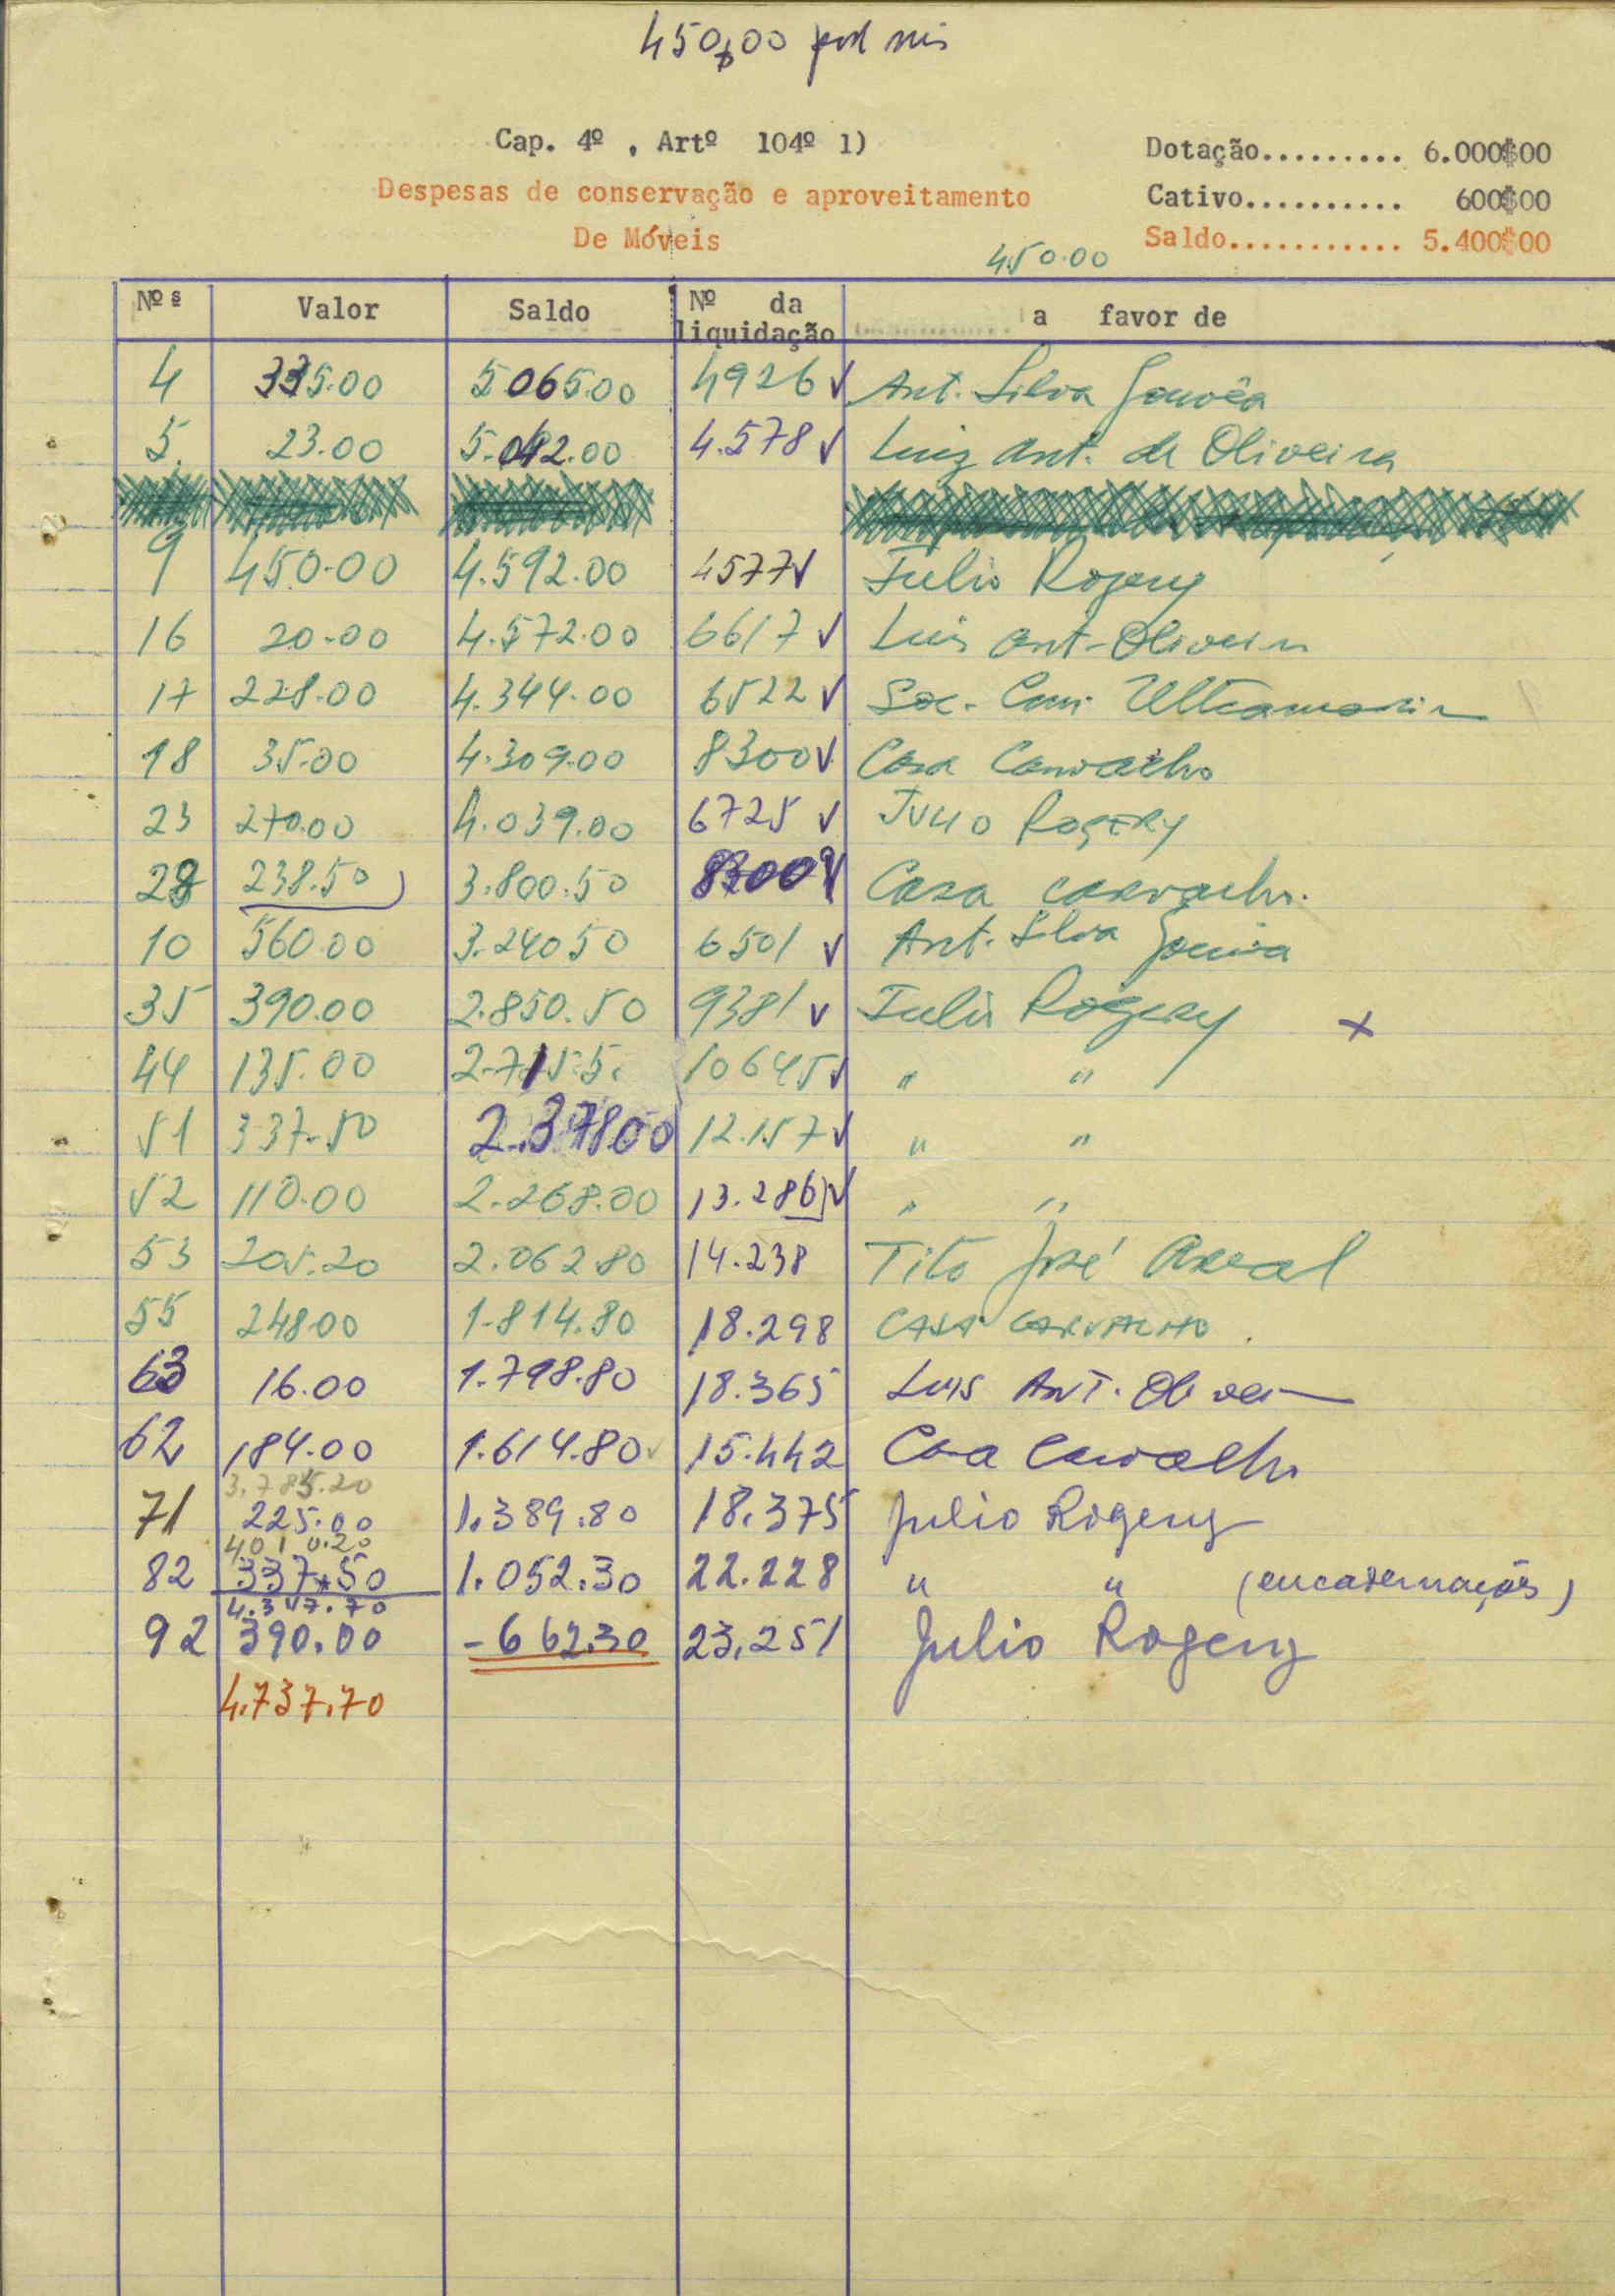 450$00 por mês
Cap. 4º , Artº 104º 1)
Despesas de conservação e aproveitamento
De Móveis
Dotação......... 6.000$00
Cativo.......... 600$00
Saldo........... 5.400$00
450.00
Nºs Valor Saldo Nº da liquidação a favor de
4 335.00 5065.00 4926 √ Ant. Silva Gouvêa
5. 23.00 5.042.00 4.578 √ Luiz Ant. de Oliveira
9 450.00 4.592.00 4577 √ Julio Rogery
16 20.00 4.572.00 6617 √ Luis Ant. Oliveira
17 228.00 4.344.00 6522 √ Soc. Com. Ultramarina
18 35.00 4.309.00 8300 √ Casa Carvalho
23 270.00 4.039.00 6725 √ Julio Rogery
28 238.50 3.800.50 √ Casa Carvalho.
10 560.00 3.24050 6501 √ Ant. Silva Gouvêa
35 390.00 2.850.50 9381 √ Julio Rogery x
44 135.00 2.715.5 10645 √ " "
51 337.50 2.37800 12.157 √ " "
52 110.00 2.268.00 13.286 √ " "
53 205.20 2.062.80 14.238 Tito José Arcal
55 24800 1.814.80 18.298 CASA CARVALHO.
63 16.00 1.798.80 18.365 Luis Ant. Oliveira
62 184.00 1.614.80 15.442 Casa Carvalho
3.785.20
71 225.00 1.389.80 18.375 Julio Rogery
4010.20
82 337.50 1.052.30 22.228 " " (encadernações)
4.347.70
92 390.00 -662.30 23.251 Julio Rogery
4.737.70